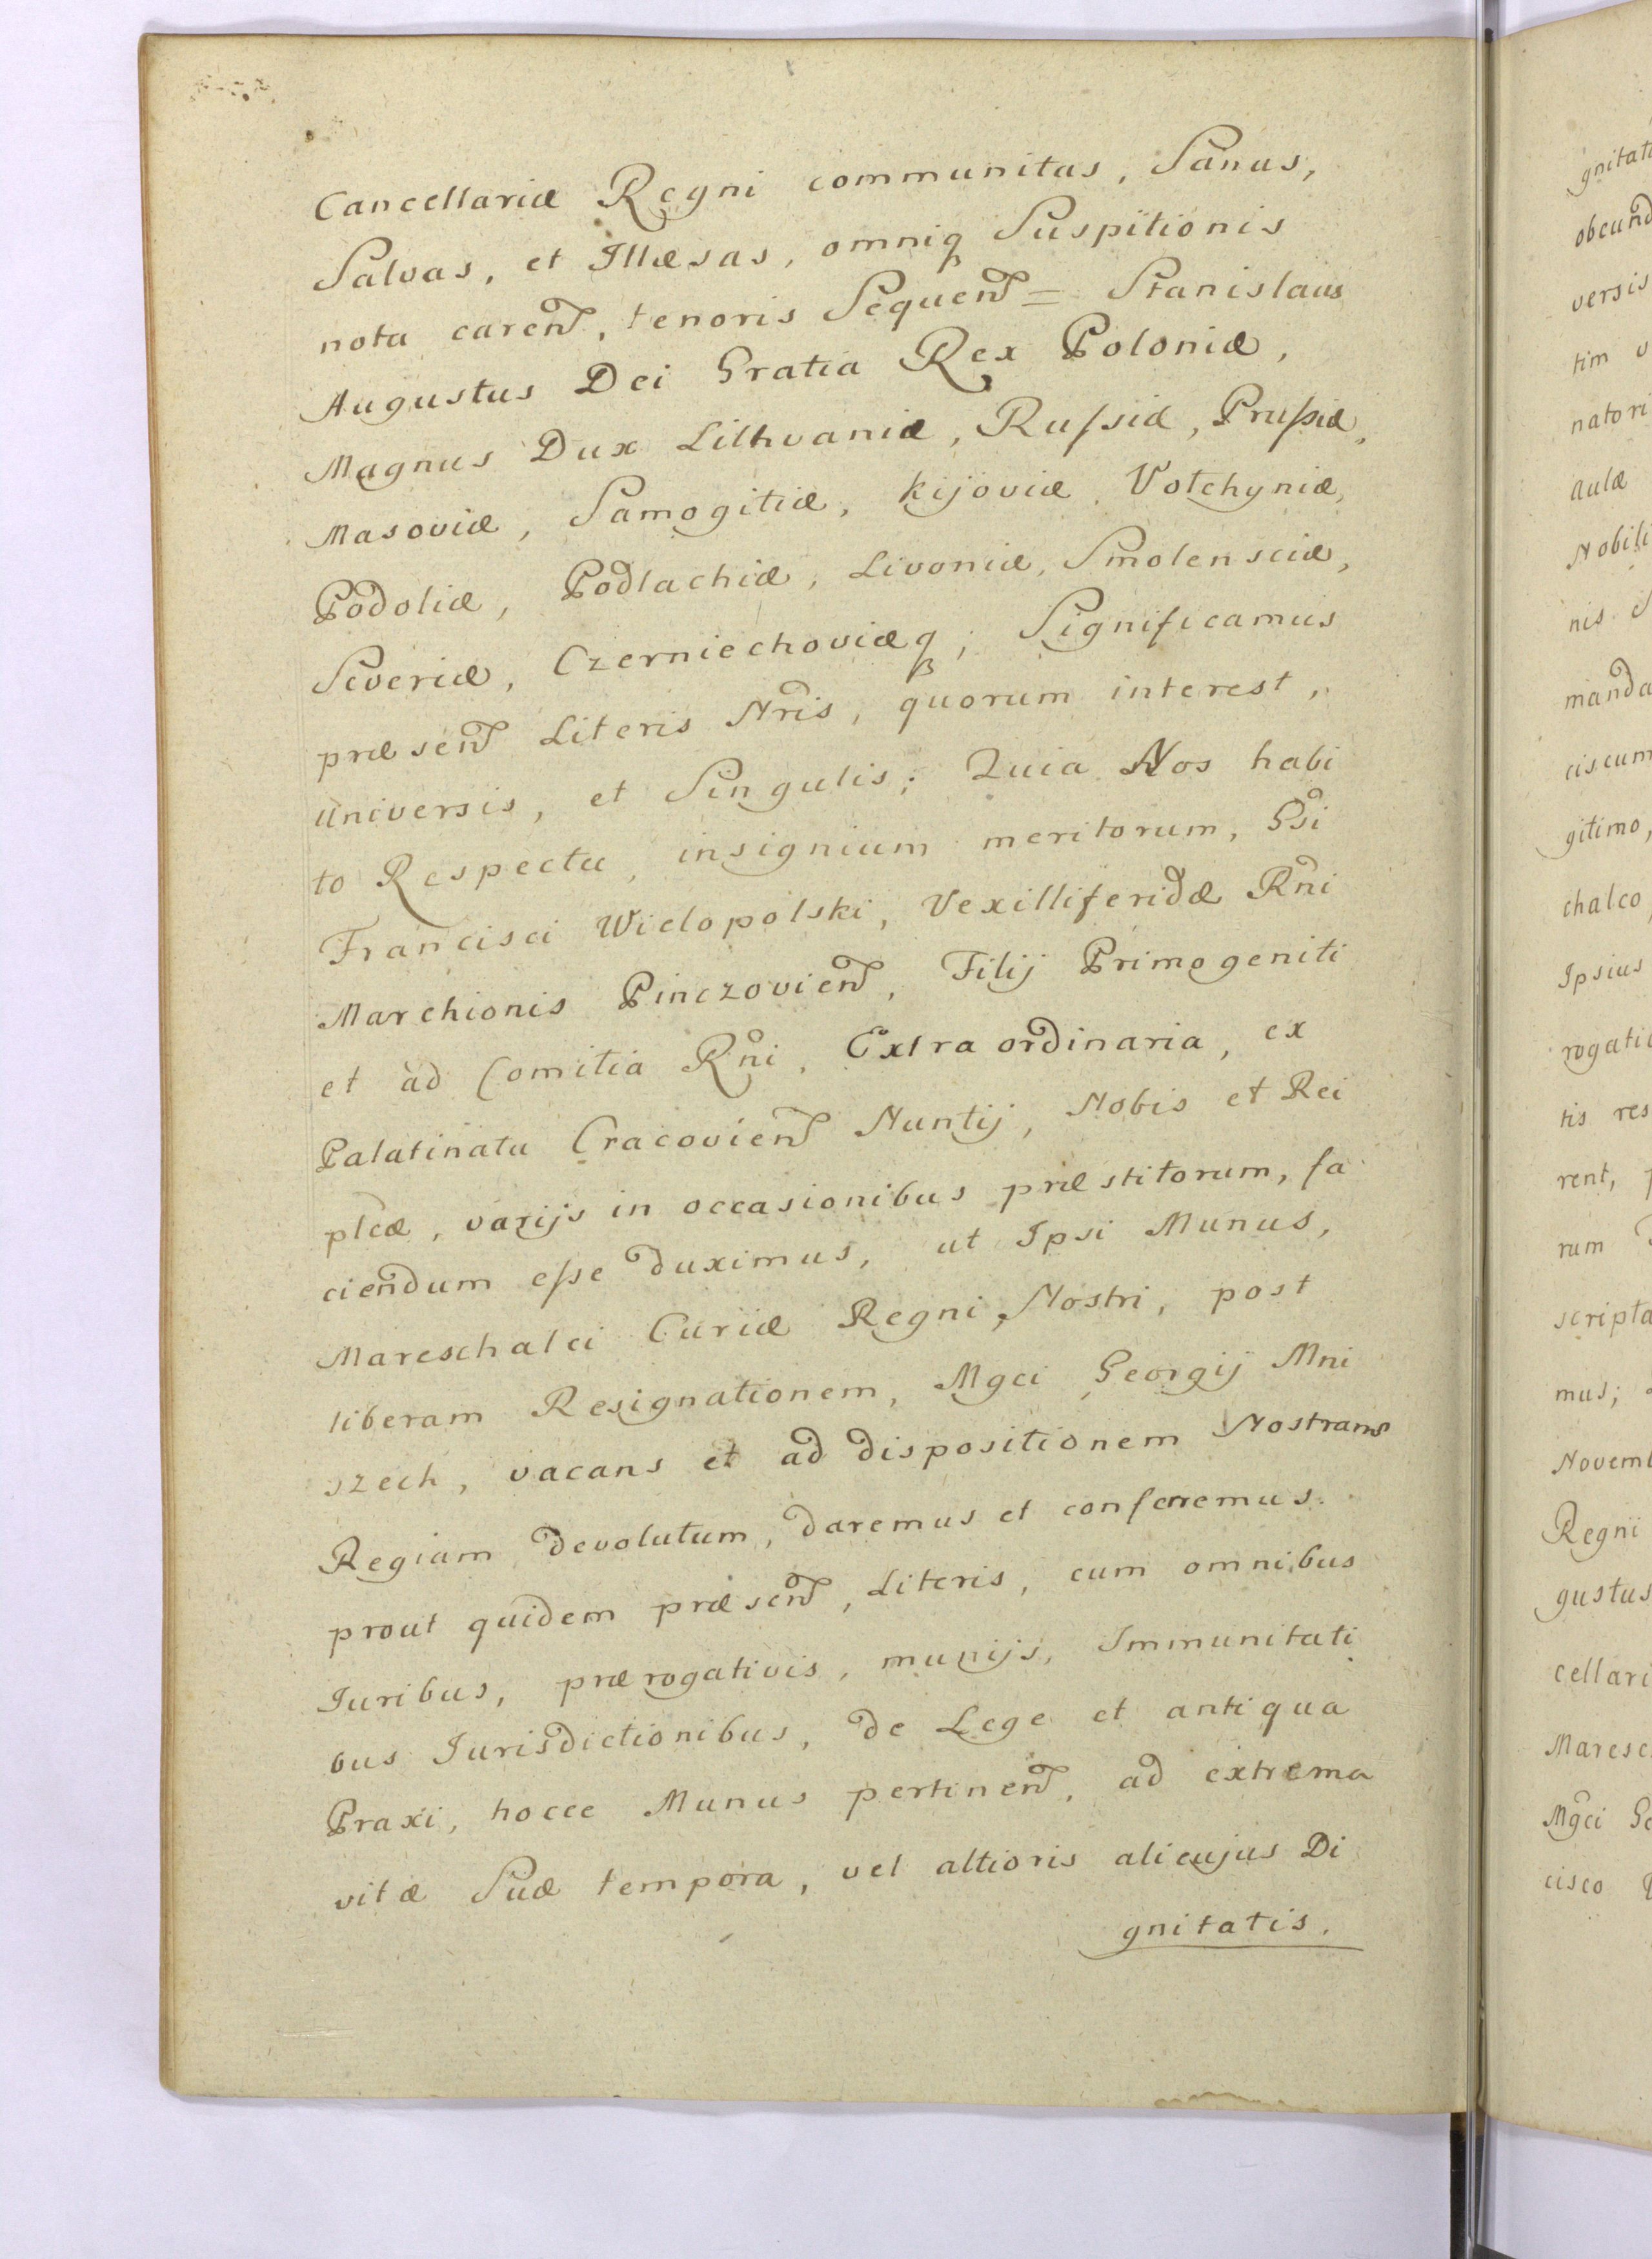 Cancellariæ Regni communitas, Sanas,
Salvas, et Illæsas, omniq Suspitionis
nota caren, tenoris Sequen = Stanislaus
Augustus Dei Gratia Rex Poloniæ,
Magnus Dux Lithvaniæ, Rufsiæ, Prufsiæ,
Masoviæ, Samogitiæ, Kijoviæ, Volchyniæ,
Podoliæ, Podlachiæ, Livoniæ, Smolensciæ,
Severiæ, Czerniechoviæq; Significamus
præsen Literis Nris, quorum interest,
universis, et Singulis; Quia Nos habi
to Respectu, insignium meritorum, Gsi
Francisci Wielopolski, Vexilliferidæ Rni
Marchionis Pinczovien, Filij Primogeniti
et ad Comitia Rni, Extraordinaria, ex
Palatinatu Cracovien Nuntij, Nobis et Rei
plcæ, varijs in occasionibus præstitorum, fa
ciendum efse duximus, ut Ipsi Munus,
Mareschalci Curiæ Regni, Nostri, post
liberam Resignationem, Mgci Georgij Mni
szech, vacans et ad dispositionem Nostram
Regiam devolutum, daremus et conferremus.
prout quidem præsen, Literis, cum omnibus
Juribus, prærogativis, munijs, Immunitati
bus Jurisdictionibus, de Lege et antiqua
Praxi, hocce Munus pertinen, ad extrema
vitæ Suæ tempora, vel altioris alicujus Di
gnitatis.